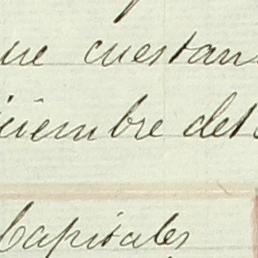 que cuestan
Diciembre del
Capitales